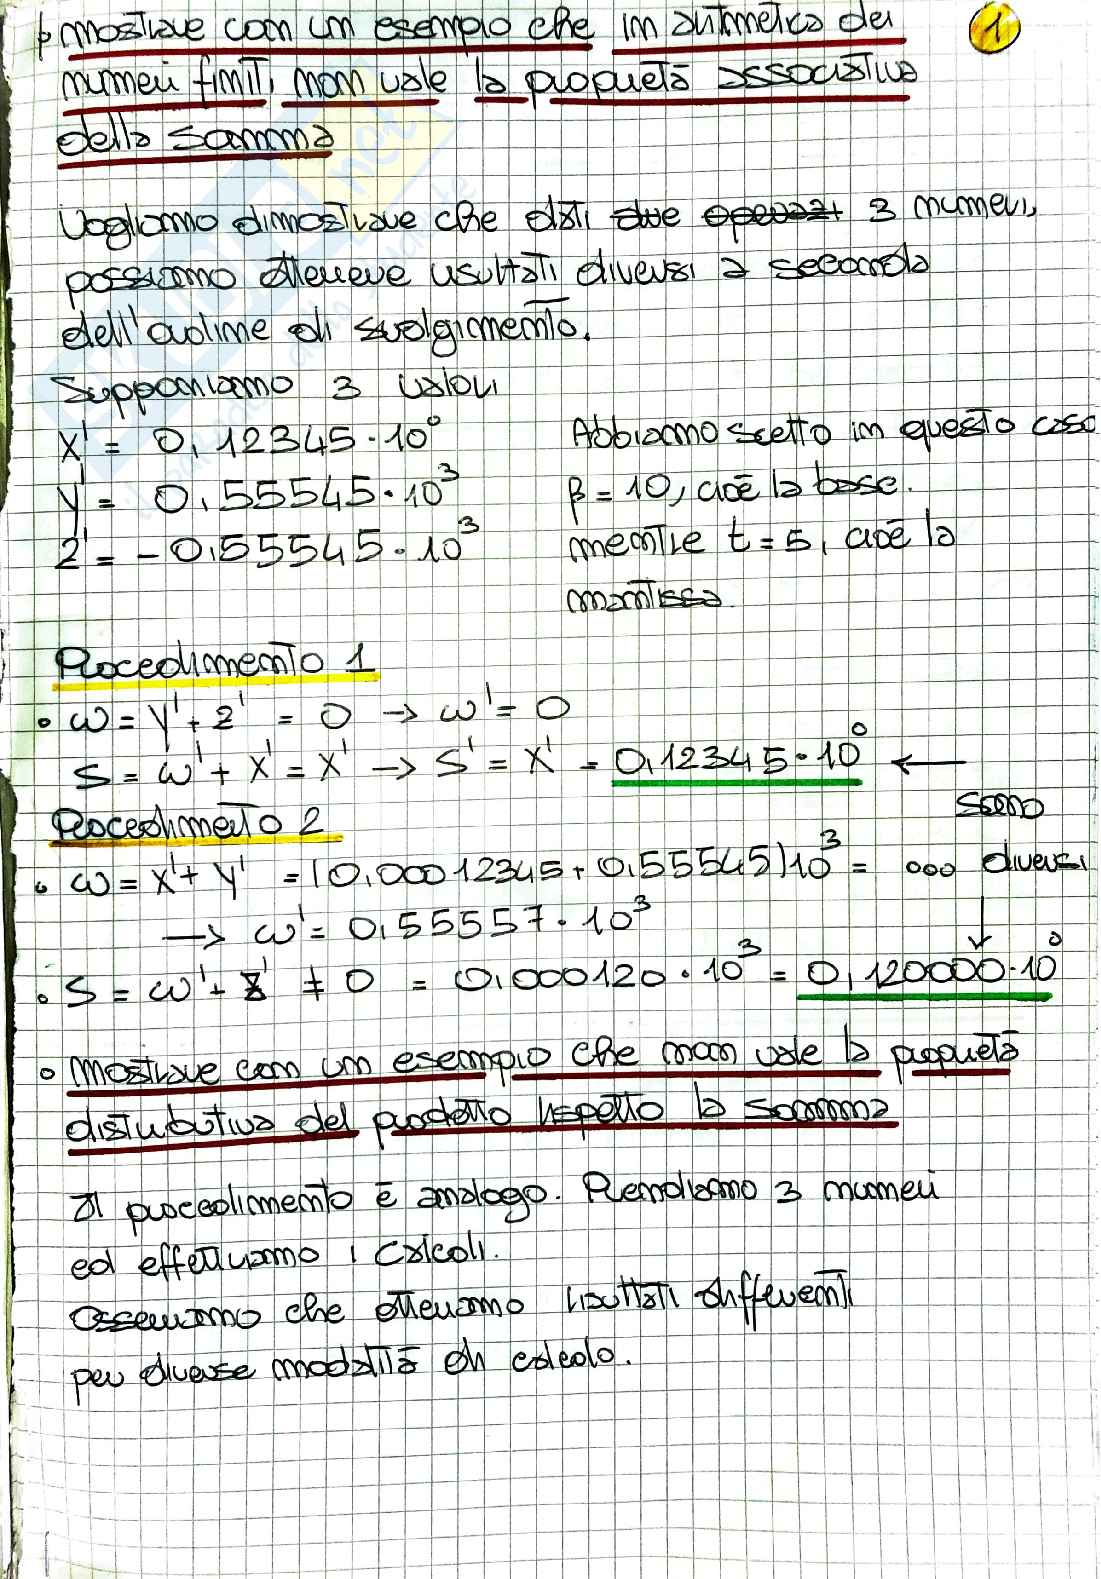 Mostrare con un esempio che in aritmetica dei
numeri finiti non vale la proprietà associativa
della somma
1
Vogliamo dimostrare che dati due operazi 3 numeri,
possiamo ottenere risultati diversi a seconda
dell'ordine di svolgimento.
Supponiamo 3 valori
x' = 0,12345·10⁰
Abbiamo scelto in questo caso
y' = 0,55545·10³
β = 10, cioè la base.
z' = -0,55545·10³
mentre t = 5, cioè la
mantissa.
Procedimento 1
• w = y' + z' = 0 → w' = 0
s = w' + x' = x' → s' = x' = 0,12345·10⁰ ←
sono
Procedimento 2
• w = x' + y' = (0,00012345 + 0,55545)10³ = ... diversi
→ w' = 0,55557·10³ ↓
• s = w' + z' ≠ 0 = 0,000120·10³ = 0,120000·10⁰
• Mostrare con un esempio che non vale la proprietà
distributiva del prodotto rispetto la somma
Il procedimento è analogo. Prendiamo 3 numeri
ed effettuiamo i calcoli.
Osserviamo che otteniamo risultati differenti
per diverse modalità di calcolo.